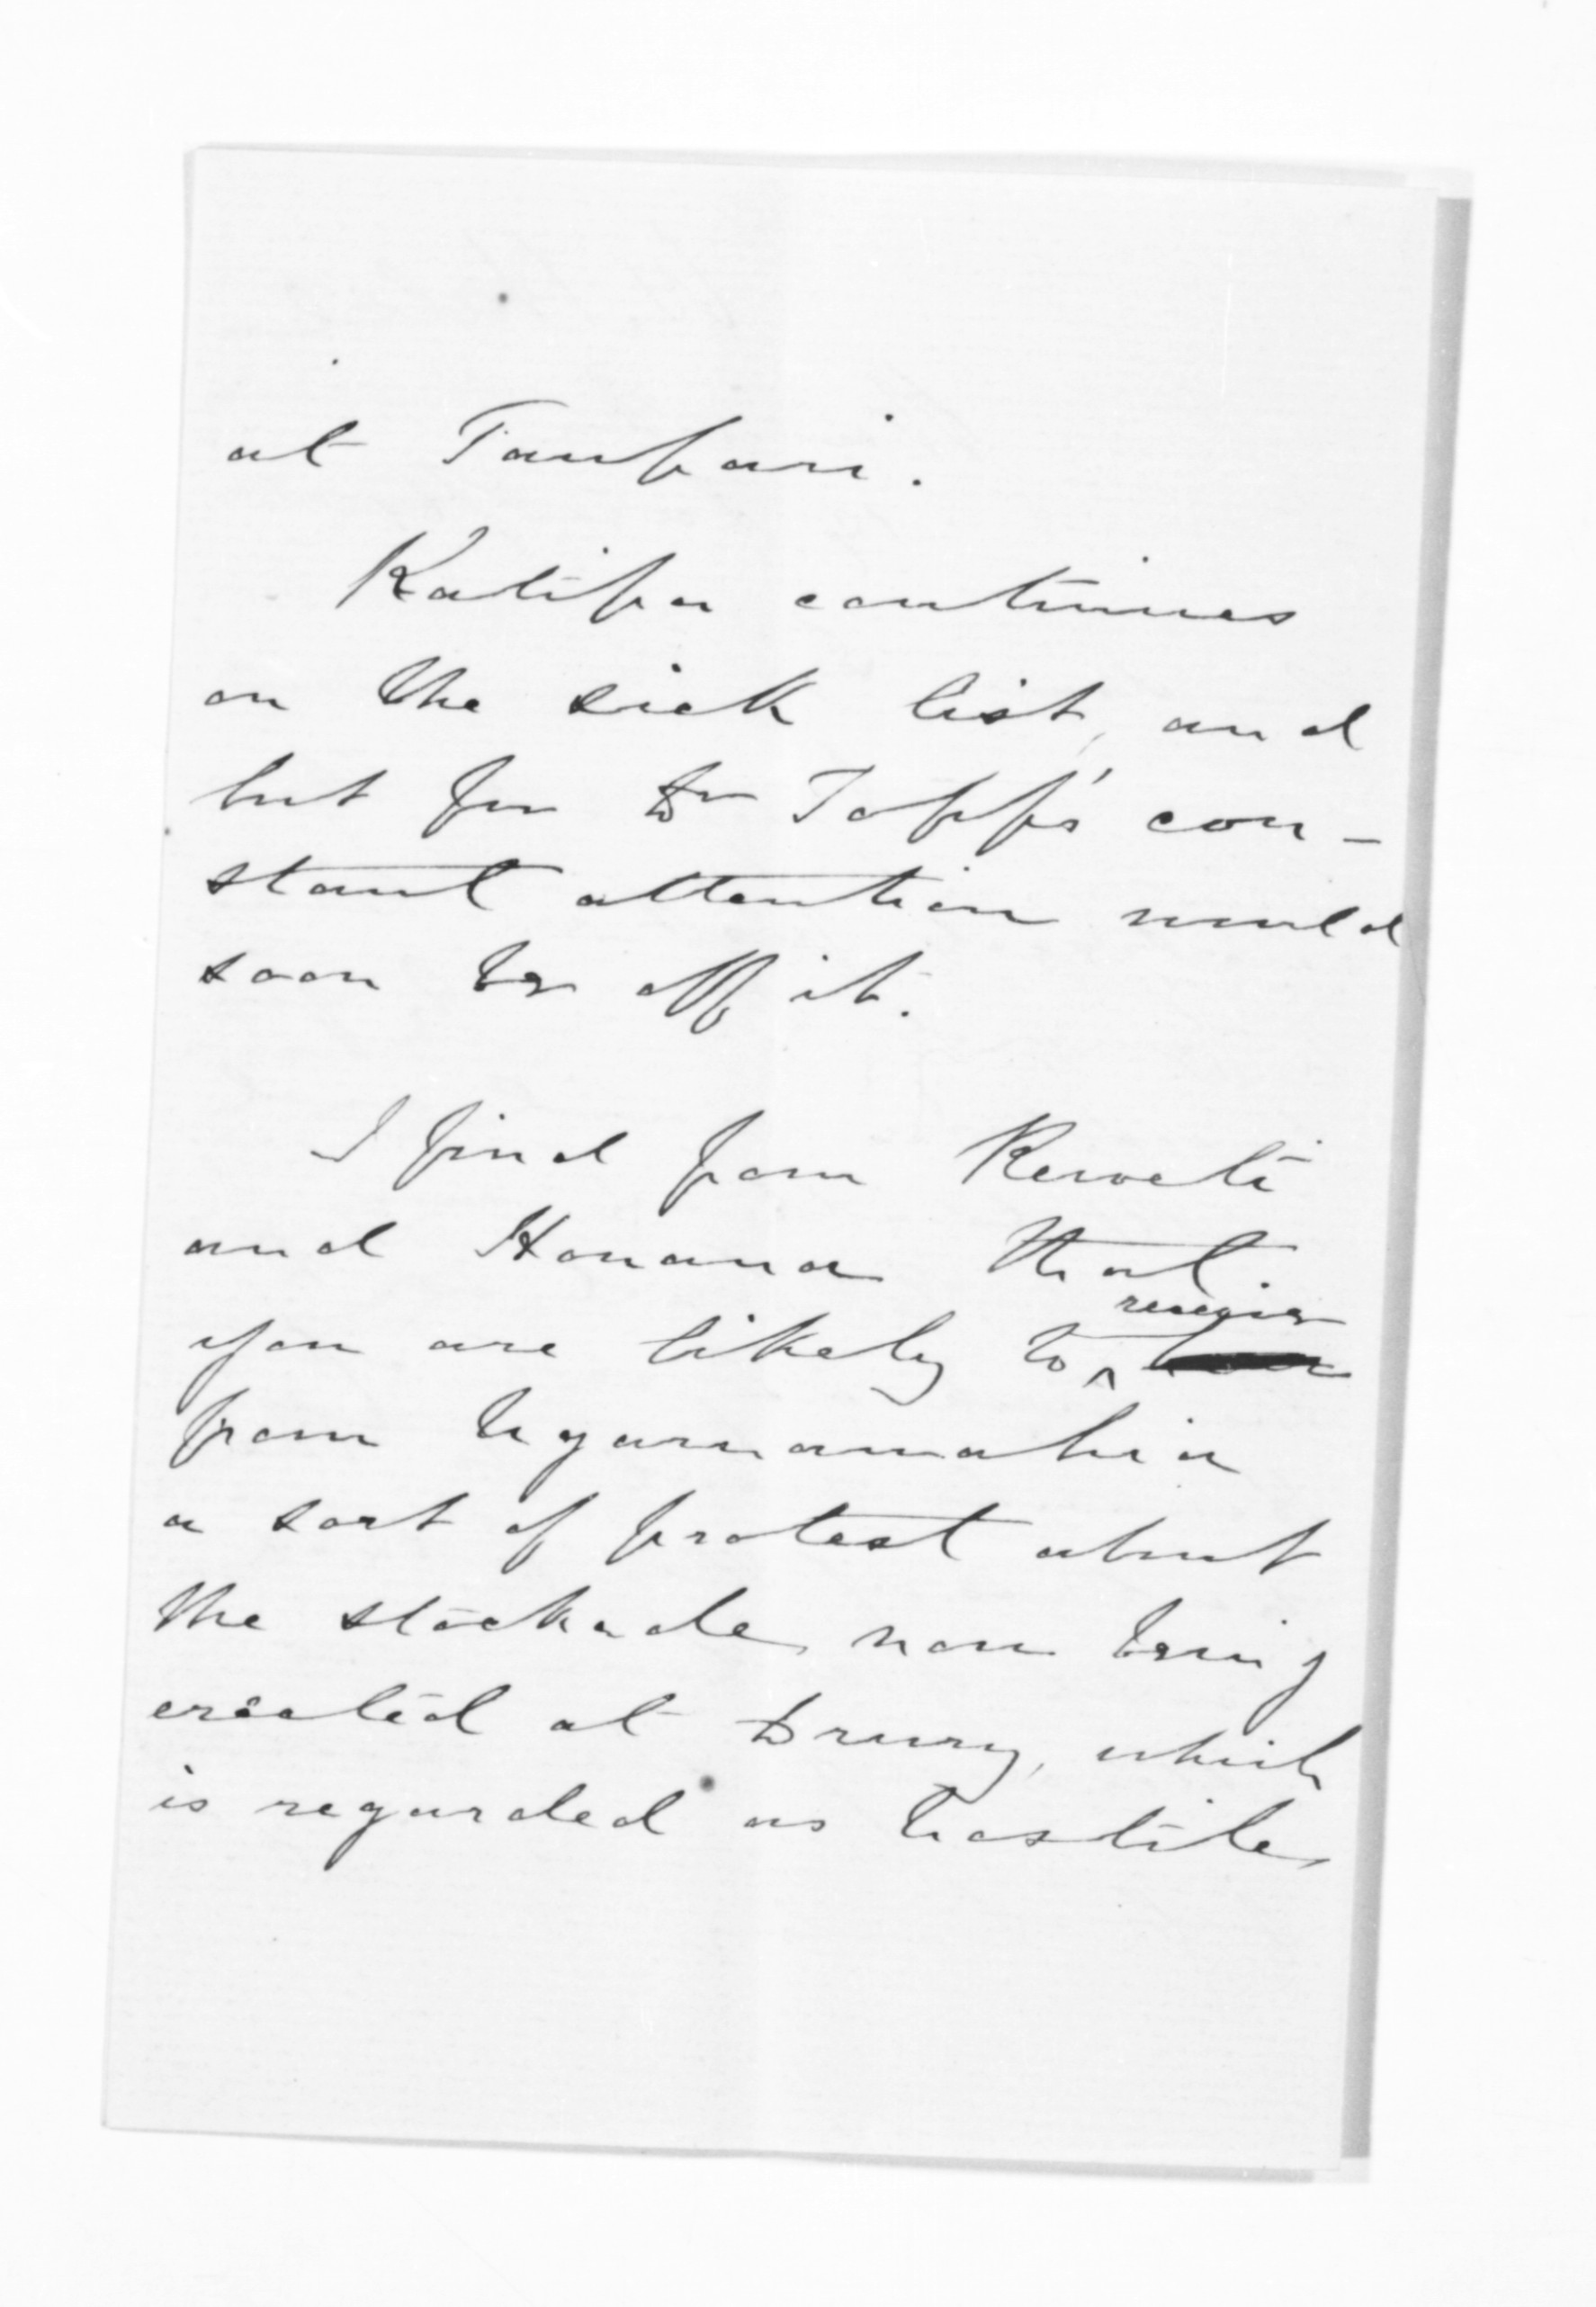 at Taupari.
Katipa continues
on the sick list, and
but for Dr Topp's con-
stant attention would
soon be off it.
I find from Reweti
and Honana that
you are likely to receive
from Ngaruawahia
a sort of protest about
the stockade now being
erected at Drury, which
is regarded as hostile